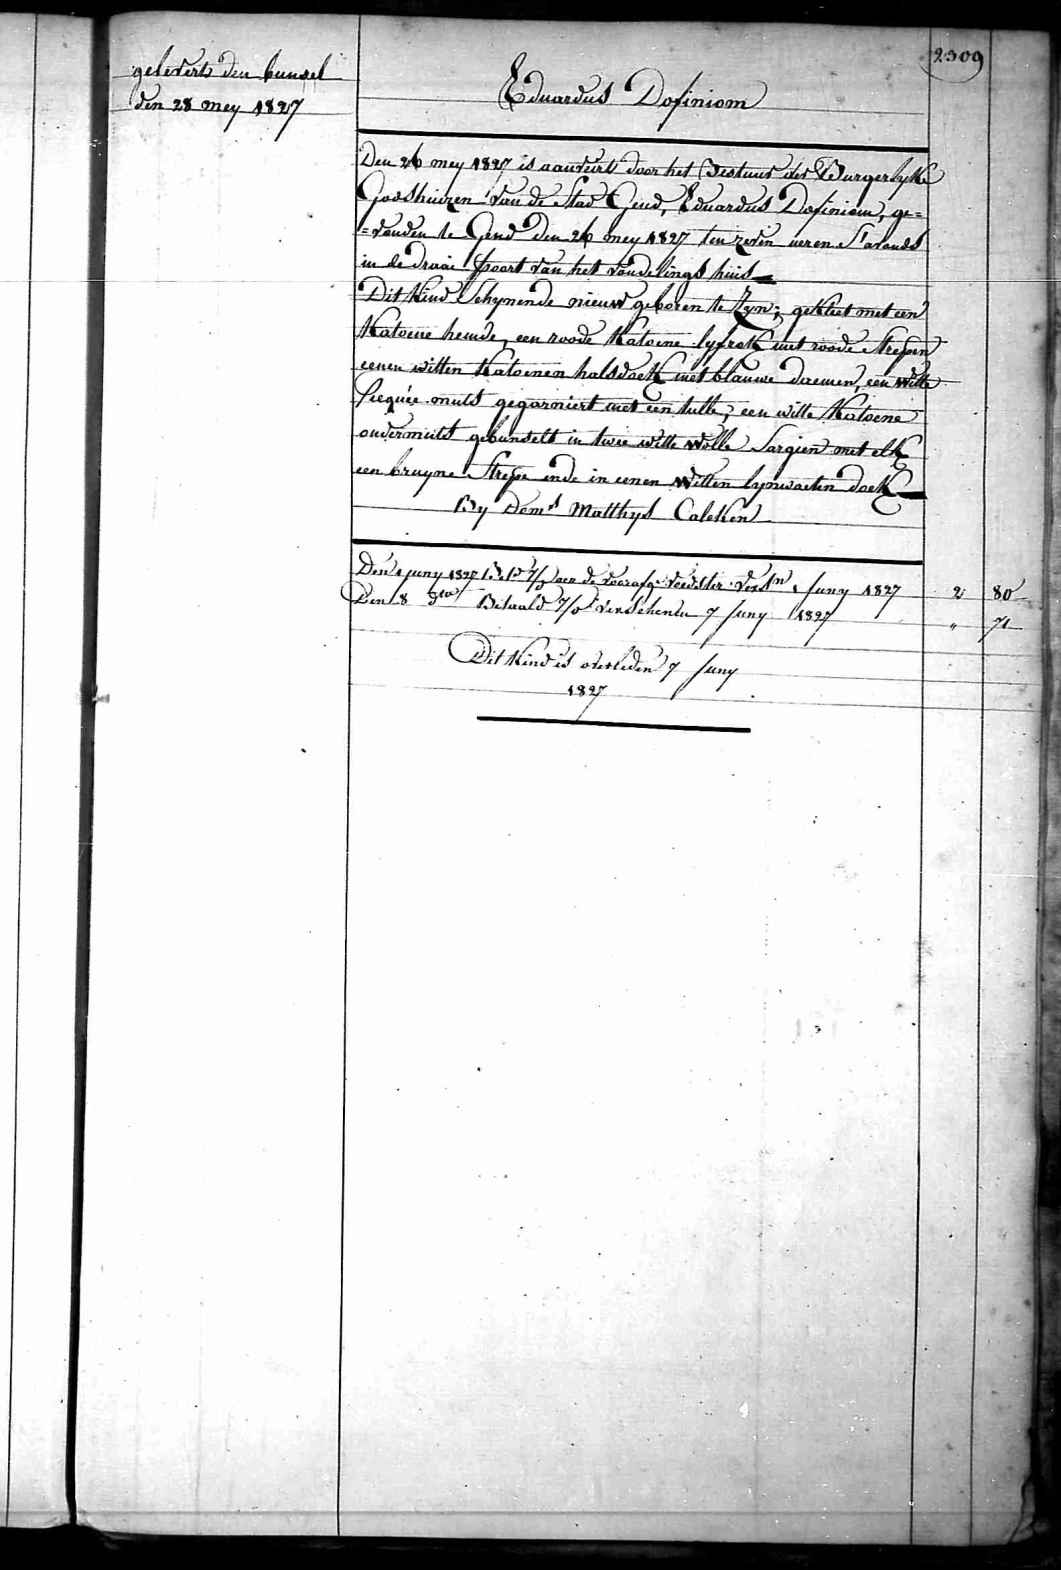 2309
gelevert den bunsel
den 28 mey 1827
Eduardus Dofiniom
Den 26 mey 1827 is aanveirt door het Bestuur der Burgerlyke
Godshuizen van de Stad Gend, Eduardus Dofiniom, ge=
=vonden te Gend den 26 mey 1827 ten zeven uren s'avonds
in de draai poort van het vondelings huis
Dit kind Schynende nieuw geboren te Zyn; gekleet met een
Katoene hemde, een roode Katoene lyfrok met roode Strepen
eenen witten Katoenen halsdoek met blauwe dermen, een witte
piequée muts gegarniert met een tulle, een witte Katoene
ondermuts gebunselt in twee witte wolle Sargien met elk
een bruyne Strepe ende in eenen witten lynwaeten doek
By Dom.s Matthys Caleken
Den 1 juny 1827 aen de voorafg. Voedster Vers.n 1 Juny 1827 2 80
Den 8 d.to Betaald Verschenen 7 Juny 1827 " 71
Dit Kind is overleden 7 Juny
1827